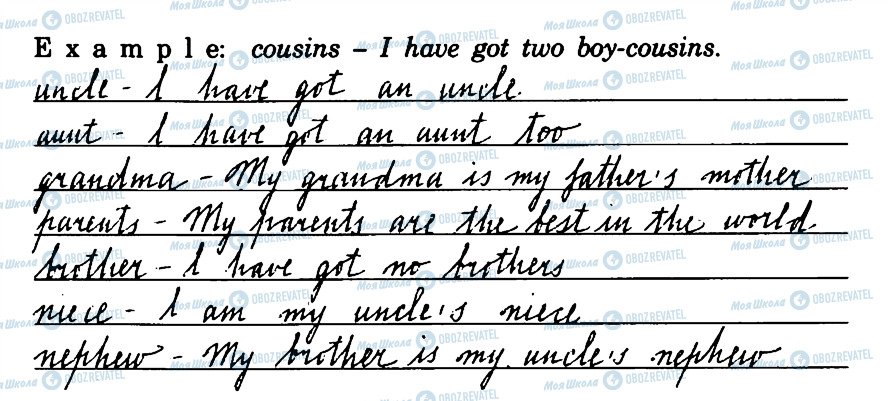 Example: cousins – I have got two boy-cousins.
uncle - I have got an uncle.
aunt - I have got an aunt too
grandma - My grandma is my father's mother
parents - My parents are the best in the world.
brother - I have got no brothers
niece - I am my uncle's niece
nephew - My brother is my uncle's nephew